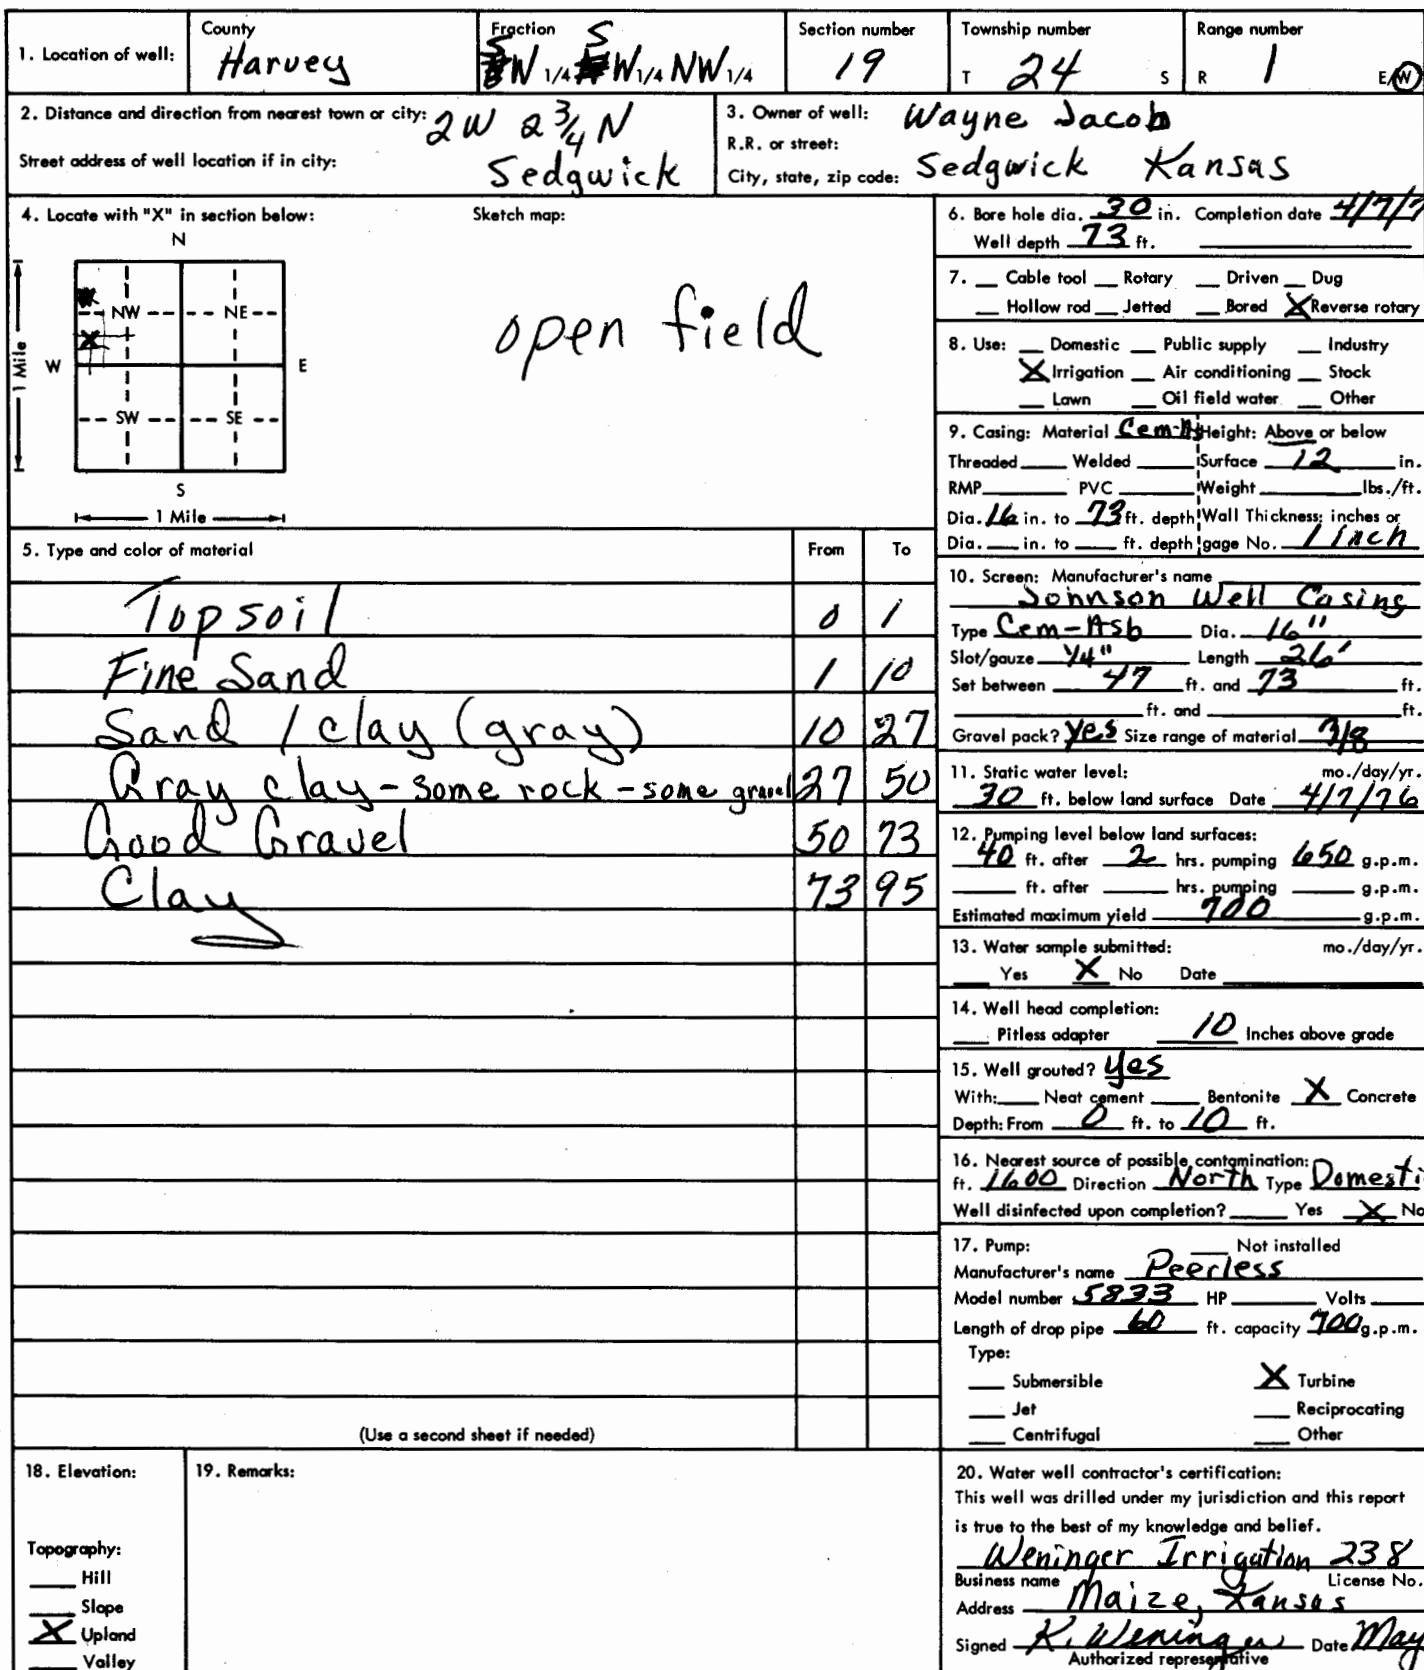 County Fraction Section number Township number Range number
1. Location of well: Harvey SW 1/4 SW 1/4 NW 1/4 19 T 24 S R 1 E/W
2. Distance and direction from nearest town or city: 2W 2 3/4 N
Street address of well location if in city: Sedgwick
3. Owner of well: Wayne Jacob
R.R. or street:
City, state, zip code: Sedgwick Kansas
4. Locate with "X" in section below: Sketch map:
N
NW NE
X
W E
1 Mile
SW SE
S
1 Mile
open field
5. Type and color of material From To
Topsoil 0 1
Fine Sand 1 10
Sand / clay (gray) 10 27
Gray clay - some rock - some gravel 27 50
Good Gravel 50 73
Clay 73 95
(Use a second sheet if needed)
6. Bore hole dia. 30 in. Completion date 4/7/7
Well depth 73 ft.
7. Cable tool Rotary Driven Dug
Hollow rod Jetted Bored X Reverse rotary
8. Use: Domestic Public supply Industry
X Irrigation Air conditioning Stock
Lawn Oil field water Other
9. Casing: Material Cem-As Height: Above or below
Threaded Welded Surface 12 in.
RMP PVC Weight lbs./ft.
Dia. 16 in. to 73 ft. depth Wall Thickness: inches or
Dia. in. to ft. depth gage No. 1 inch
10. Screen: Manufacturer's name
Johnson Well Casing
Type Cem-Asb Dia. 16"
Slot/gauze 1/4" Length 26'
Set between 47 ft. and 73 ft.
ft. and ft.
Gravel pack? Yes Size range of material 3/8
11. Static water level: mo./day/yr.
30 ft. below land surface Date 4/7/76
12. Pumping level below land surfaces:
40 ft. after 2 hrs. pumping 650 g.p.m.
ft. after hrs. pumping g.p.m.
Estimated maximum yield 700 g.p.m.
13. Water sample submitted: mo./day/yr.
Yes X No Date
14. Well head completion:
Pitless adapter 10 Inches above grade
15. Well grouted? yes
With: Neat cement Bentonite X Concrete
Depth: From 0 ft. to 10 ft.
16. Nearest source of possible contamination:
ft. 1600 Direction North Type Domesti
Well disinfected upon completion? Yes X No
17. Pump: Not installed
Manufacturer's name Peerless
Model number 5833 HP Volts
Length of drop pipe 60 ft. capacity 700 g.p.m.
Type:
Submersible X Turbine
Jet Reciprocating
Centrifugal Other
18. Elevation:
Topography:
Hill
Slope
X Upland
Valley
19. Remarks:
20. Water well contractor's certification:
This well was drilled under my jurisdiction and this report
is true to the best of my knowledge and belief.
Weninger Irrigation 238
Business name License No.
Address Maize, Kansas
Signed K. Weninger Date May
Authorized representative